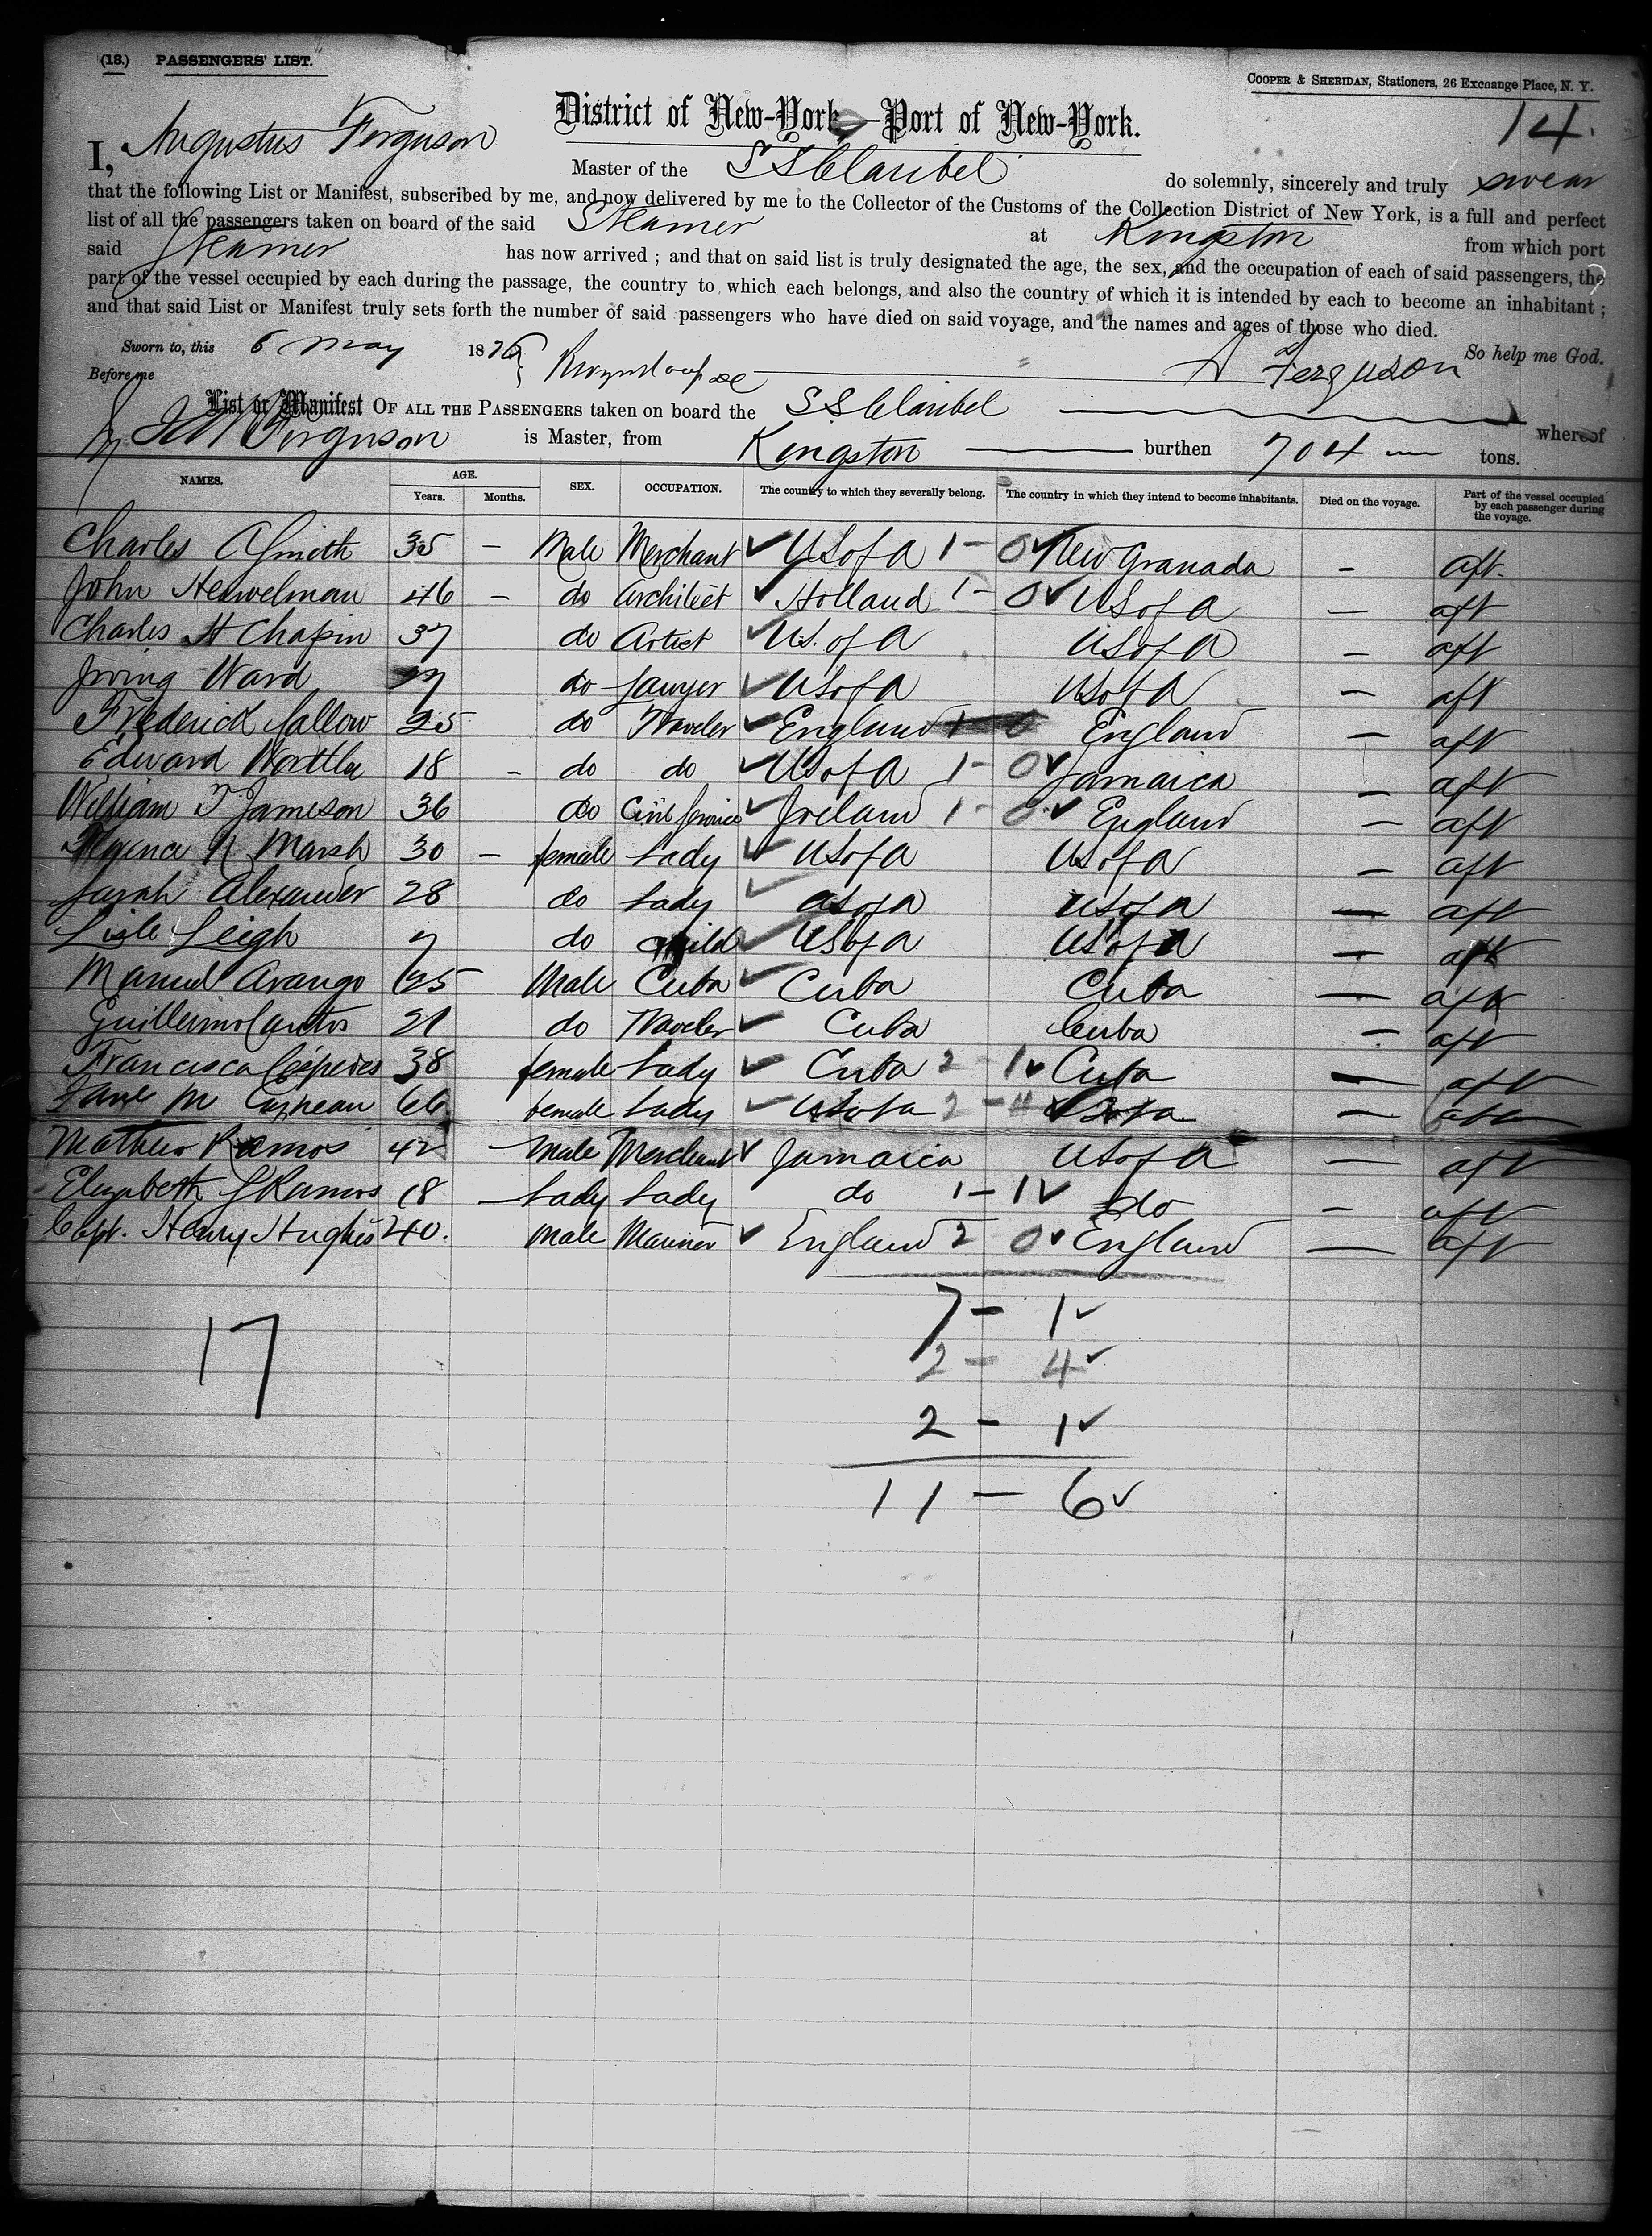 (18.) PASSENGERS' LIST.
COOPER & SHERIDAN, Stationers, 26 Exchange Place, N. Y.
14.
District of New-York, Port of New-York.
I, Augustus Ferguson Master of the S S Claribel do solemnly, sincerely and truly swear
that the following List or Manifest, subscribed by me, and now delivered by me to the Collector of the Customs of the Collection District of New York, is a full and perfect
list of all the passengers taken on board of the said Steamer at Kingston from which port
said Steamer has now arrived ; and that on said list is truly designated the age, the sex, and the occupation of each of said passengers, the
part of the vessel occupied by each during the passage, the country to which each belongs, and also the country of which it is intended by each to become an inhabitant ;
and that said List or Manifest truly sets forth the number of said passengers who have died on said voyage, and the names and ages of those who died.
Sworn to, this 6 May 1876 So help me God.
Before me A Ferguson
List or Manifest OF ALL THE PASSENGERS taken on board the S S Claribel whereof
Ferguson is Master, from Kingston burthen 704 tons.
NAMES. AGE. Years. Months. SEX. OCCUPATION. The country to which they severally belong. The country in which they intend to become inhabitants. Died on the voyage. Part of the vessel occupied by each passenger during the voyage.
Charles A Smith 35 - Male Merchant ✓ U S of A 1 - 0 ✓ New Granada - aft.
John 46 - do Architect ✓ Holland 1 - 0 ✓ U S of A - aft
Charles H Chapin 37 do Artist ✓ U.S. of A U S of A - aft
Irving Ward do Lawyer ✓ U S of A U S of A - aft
Frederick Sallow 25 do Traveler ✓ England England - aft
Edward 18 - do do ✓ U S of A 1 - 0 ✓ Jamaica - aft
William T Jameson 36 do Civil Service ✓ Ireland 1 - 0 ✓ England - aft
Florence N Marsh 30 - female Lady ✓ U S of A U S of A - aft
Sarah Alexander 28 do Lady ✓ U S of A U S of A - aft
Lisle Leigh 7 do child ✓ U S of A U S of A - aft
Manuel Arango 25 Male Cuba ✓ Cuba Cuba - aft
Guillermo 21 do Traveler ✓ Cuba Cuba - aft
Francisca Céspedes 38 female Lady ✓ Cuba 2 - 1 ✓ Cuba - aft
Jane M Cazneau 66 female Lady ✓ U S of A 2 - 4 ✓ U S of A - aft
Mathew Ramos 42 - Male Merchant ✓ Jamaica U S of A - aft
Elizabeth S Ramos 18 - Lady Lady do 1 - 1 ✓ do - aft
Capt. Henry Hughes 40. Male Mariner ✓ England 2 0 ✓ England - aft
7 - 1 ✓
17
2 - 4 ✓
2 - 1 ✓
11 - 6 ✓